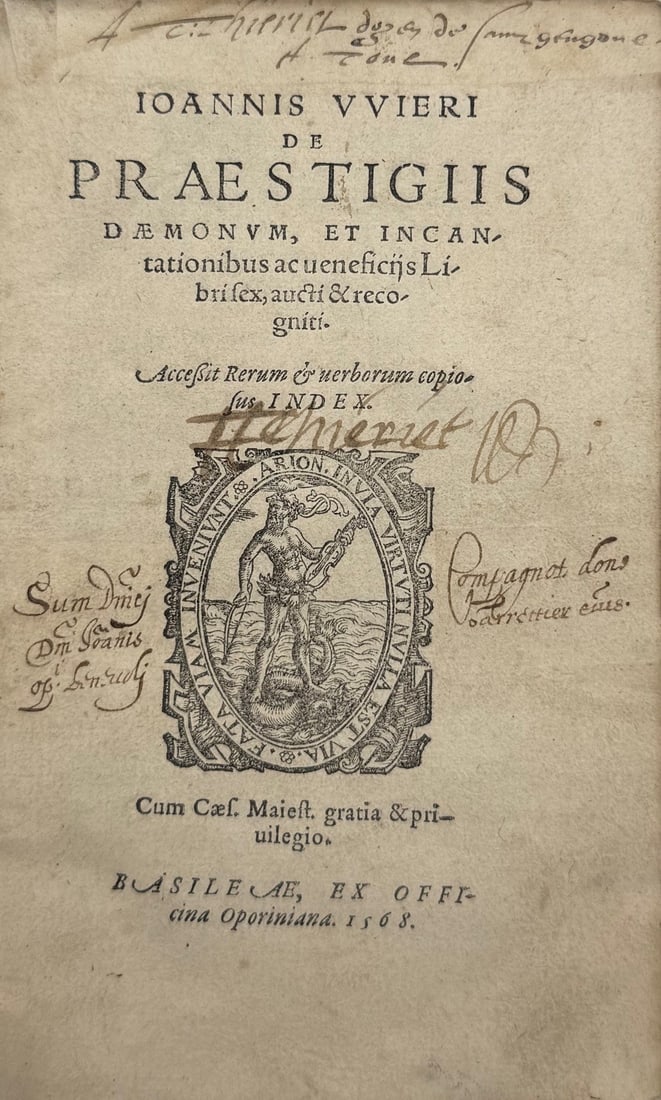 doyen de
IOANNIS VVIERI
DE
PRAESTIGIIS
DÆMONVM, ET INCAN-
tationibus ac ueneficijs Li-
bri ſex, aucti & reco-
gniti.
Acceſsit Rerum & uerborum copio-
ſus INDEX.
ARION. INVIA VIRTVTI NVLLA EST VIA.
FATA VIAM INVENIVNT.
Sum Dn̄ej
Dn̄i Joānis
Compagnot dono
eius.
Cum Cæſ. Maieſt. gratia & pri-
uilegio.
BASILEAE, EX OFFI-
cina Oporiniana. 1568.